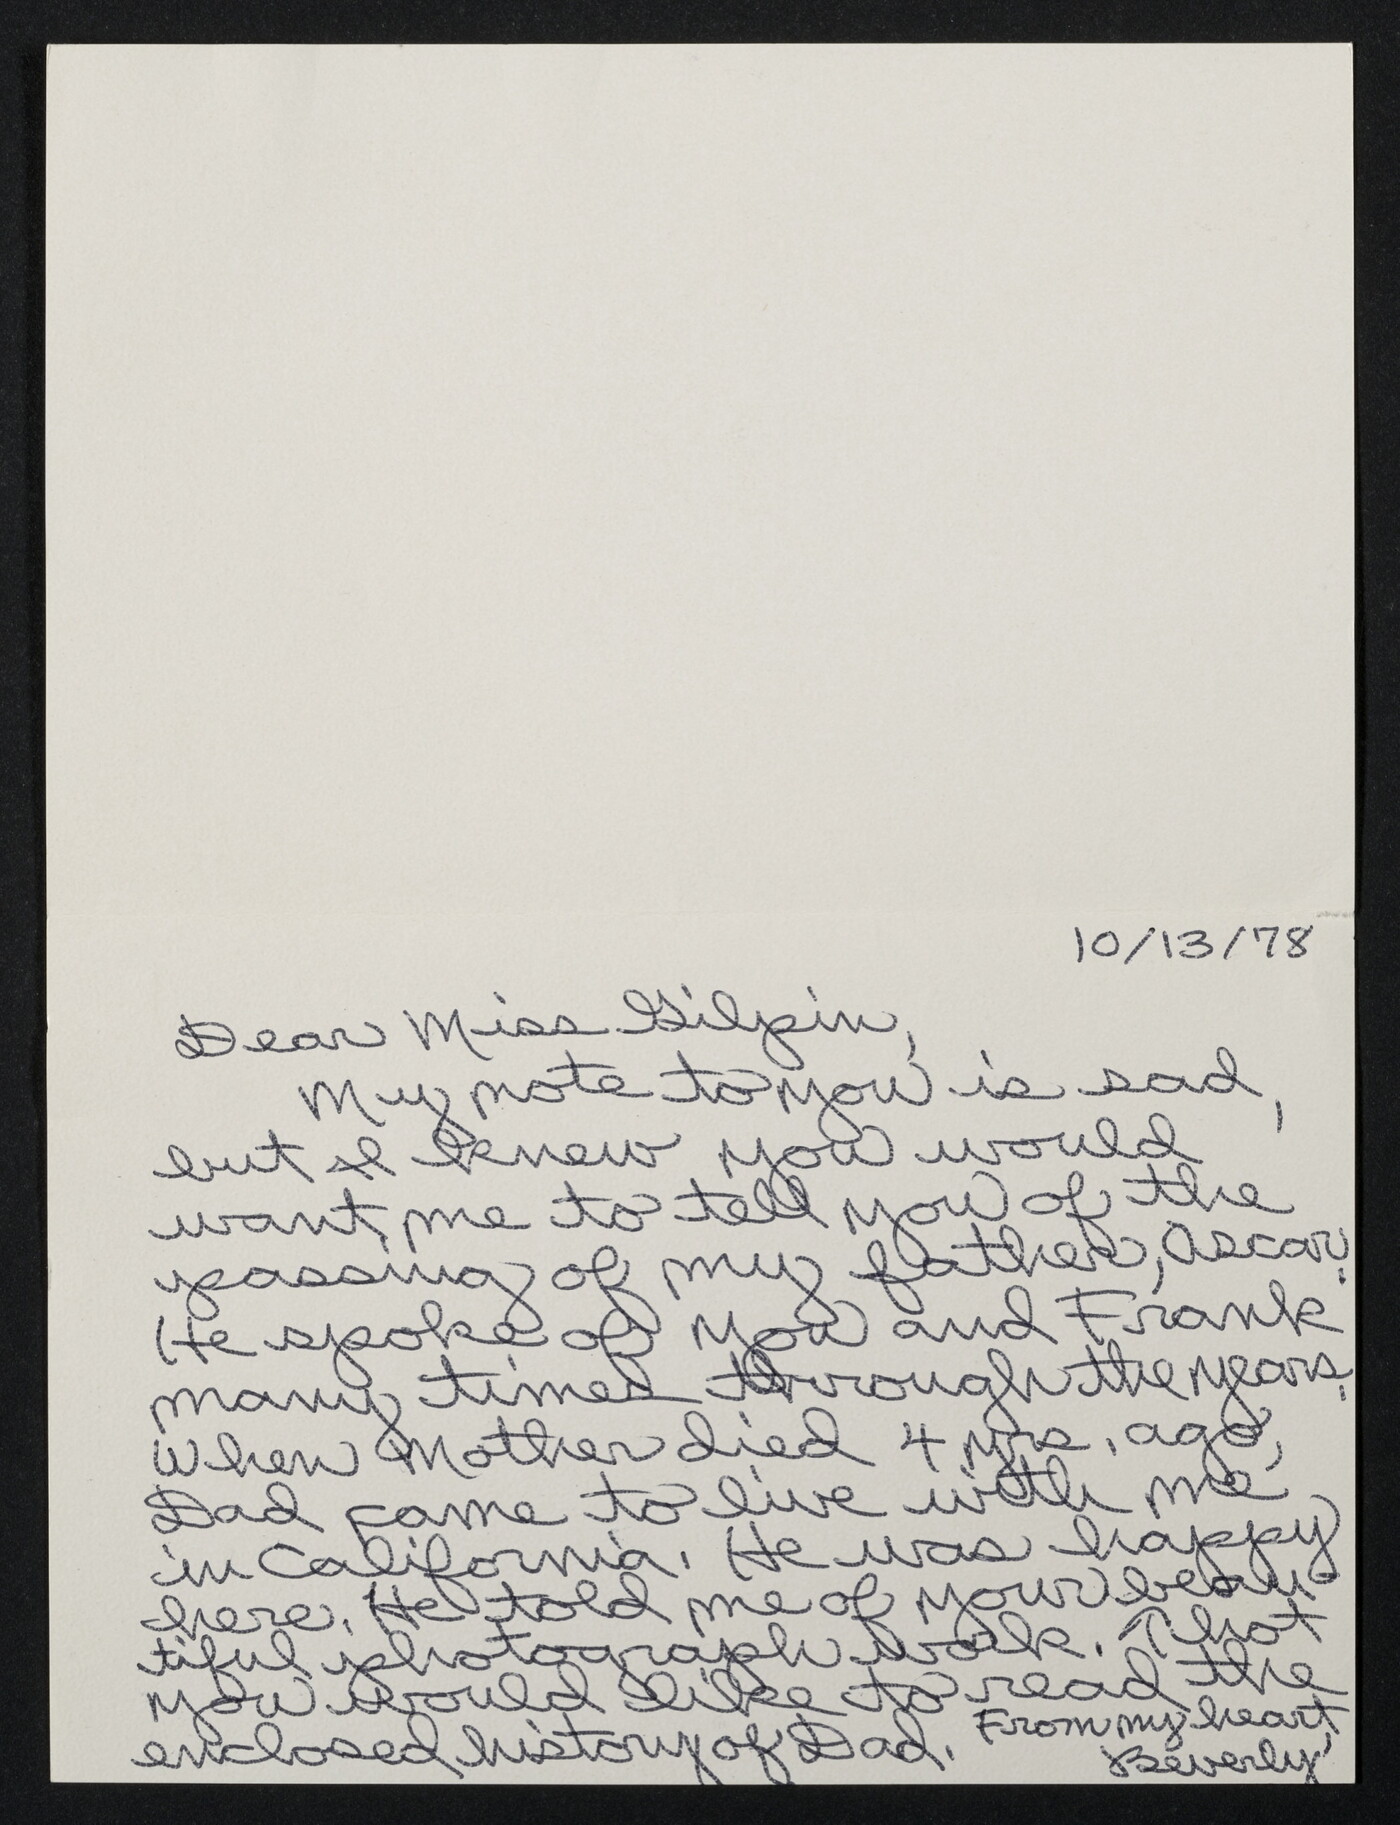 10/13/78
Dear Miss Gilpin,
My note to you is sad,
but I knew you would
want me to tell you of the
passing of my father, Oscar.
He spoke of you and Frank
many times through the years.
When Mother died 4 yrs. ago,
Dad came to live with me
in California. He was happy
here. He told me of your beau-
tiful photograph work. Thot
you would like to read the
enclosed history of Dad. From my heart,
Beverly